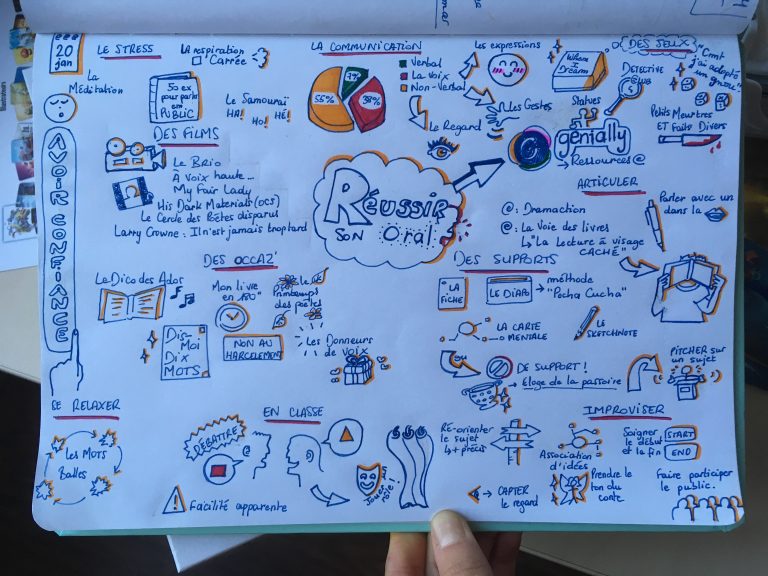 20
jan
LE STRESS
La
Méditation
LA respiration
Carrée
50 ex
pour parler
en
PUBLIC
Le Samouraï
HA! Ho! HÉ!
LA COMMUNICATION
7%
38%
55%
Verbal
La Voix
Non-Verbal
Le Regard
Les expressions
Les Gestes
When
I
Dream
Statues
genially
→ Ressources @
DES JEUX
DETECTIVE
CLUB
"Cmt
j'ai adopté
un gnou"
Petits Meurtres
ET Faits Divers
AVOIR CONFIANCE
DES FILMS
Le Brio
À Voix haute...
My Fair Lady
His Dark Materials (OCS)
Le Cercle des Poètes disparus
Larry Crowne: Il n'est jamais trop tard
RÉUSSIR
SON Oral
ARTICULER
@: Dramaction
@: La Voie des livres
↳ "La Lecture à visage
CACHÉ"
Parler avec un
dans la
DES OCCAZ'
Le Dico des Ados
Mon livre
en 180"
le
Printemps
des poètes
Dis-
Moi
Dix
MOTS
NON AU
HARCELEMENT
Les Donneurs
de Voix
DES SUPPORTS
LA
FICHE
LE DIAPO
méthode
"Pecha Cucha"
LA CARTE
MENTALE
LE
SKETCHNOTE
OU
DE SUPPORT!
Éloge de la passoire
PITCHER sur
un sujet
SE RELAXER
Les Mots
Balles
EN CLASSE
DÉBATTRE
Facilité apparente
Jouer un
rôle!
IMPROVISER
RE-orienter
le sujet
↳ + précis
Association
d'idées
Soigner
le début
et la fin
START
END
→ CAPTER
le regard
Prendre le
ton du
conte
Faire participer
le public.